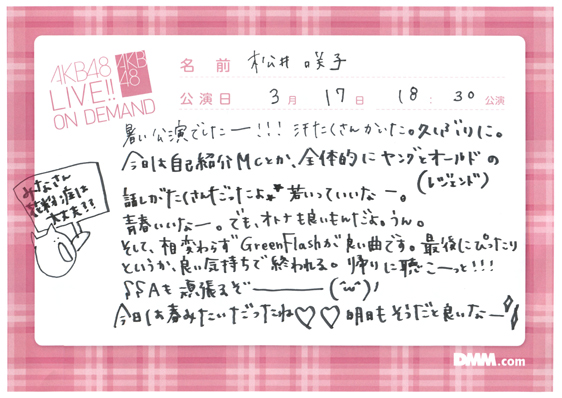 AKB48
LIVE!!
ON DEMAND
AKB
48
名前 松井 咲子
公演日 3月 17日 18:30公演
暑い公演でしたー!!! 汗たくさんかいた。久しぶりに。
今日は自己紹介MCとか、全体的にヤングとオールドの
(レジェンド)
話しがたくさんだったよ 若いっていいなー。
青春いいなー。でも、オトナも良いもんだよ。うん。
そして、相変わらずGreenFlashが良い曲です。最後にぴったり
というか、良い気持ちで終われる。帰りに聴こーっと!!!
SSAも頑張るぞ
今日は春みたいだったね♡♡ 明日もそうだと良いなー
みなさん
花粉症は
大丈夫!?
DMM.com